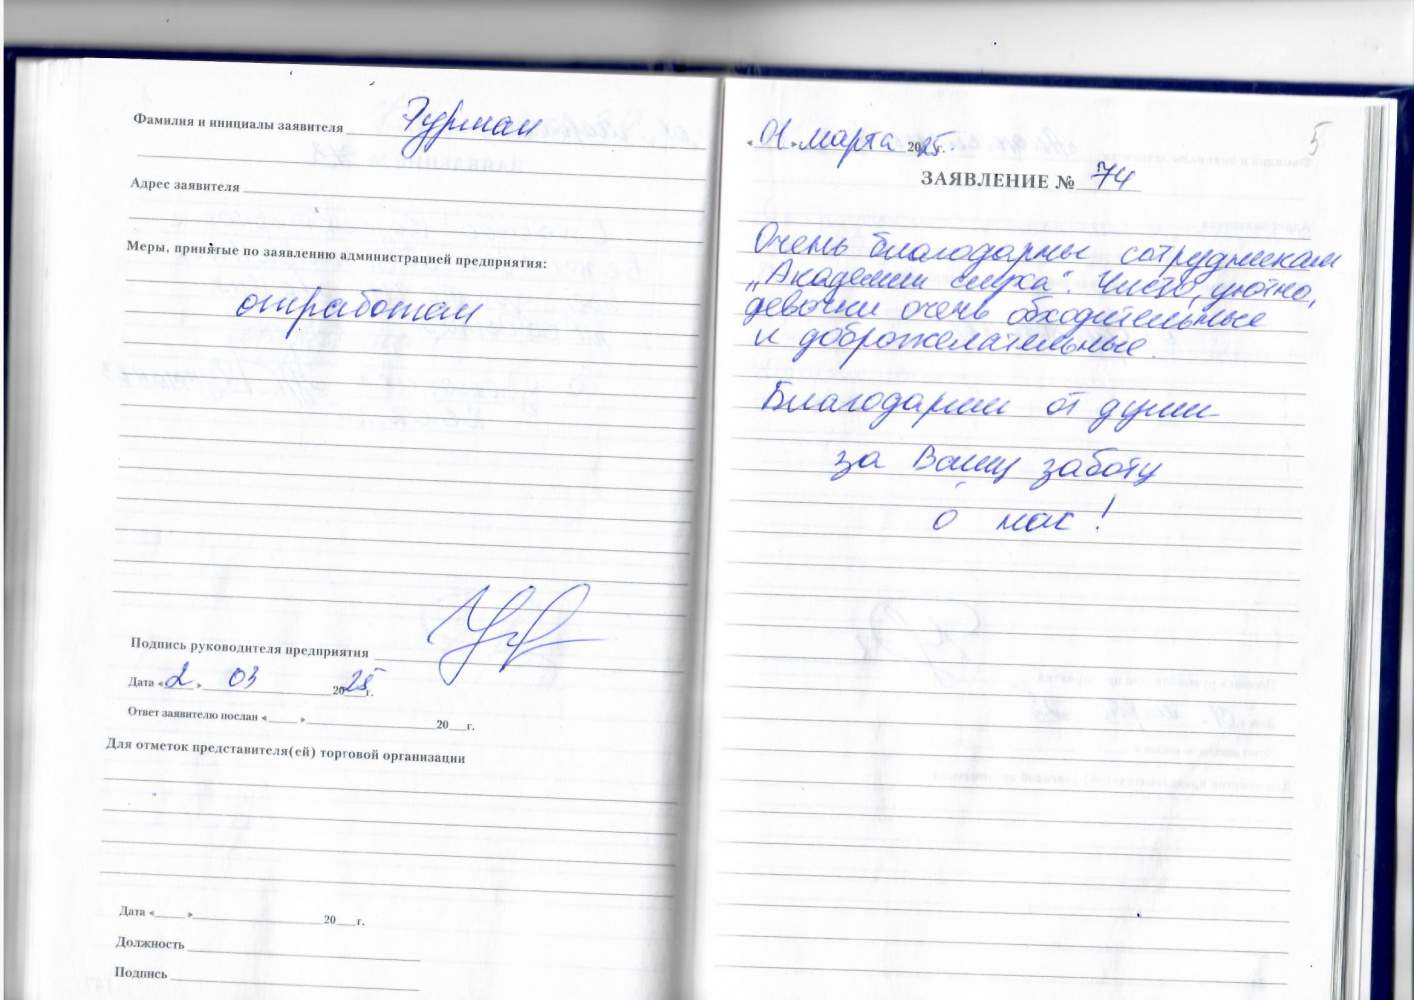 Фамилия и инициалы заявителя Гурман
Адрес заявителя
Меры, принятые по заявлению администрацией предприятия:
отработан
Подпись руководителя предприятия
Дата « 2 » 03 2025 г.
Ответ заявителю послан « » 20 г.
Для отметок представителя(ей) торговой организации
Дата « » 20 г.
Должность
Подпись
5
« 01 » марта 2025 г.
ЗАЯВЛЕНИЕ № 74
Очень благодарны сотрудникам
„Академии слуха“. Чисто, уютно,
девочки очень обходительные
и доброжелательные.
Благодарим от души
за Вашу заботу
о нас!